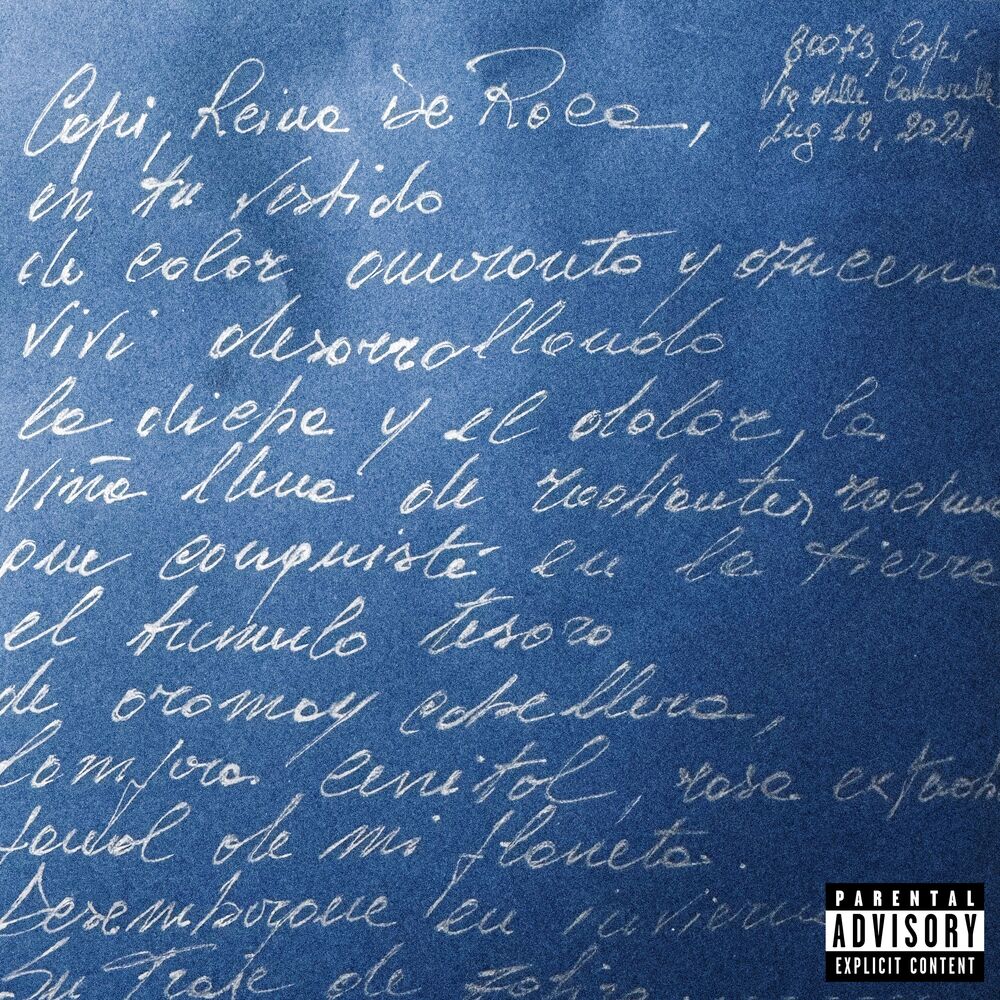 80073, Capri
Via delle Camerelle
Lug 12, 2024
Capri, Reina De Roca,
en tu vestido
de color amaranto y azucena
vivi desarrollando
la dicha y el dolor, la
viña llena de radiantes racim
que conquisté en la tierra
el tumulo tesoro
de aroma y cabellera,
lampara cenital, rosa
panal de mi planeta.
Desembarque en invierno
Su traje de zafiro
PARENTAL
ADVISORY
EXPLICIT CONTENT